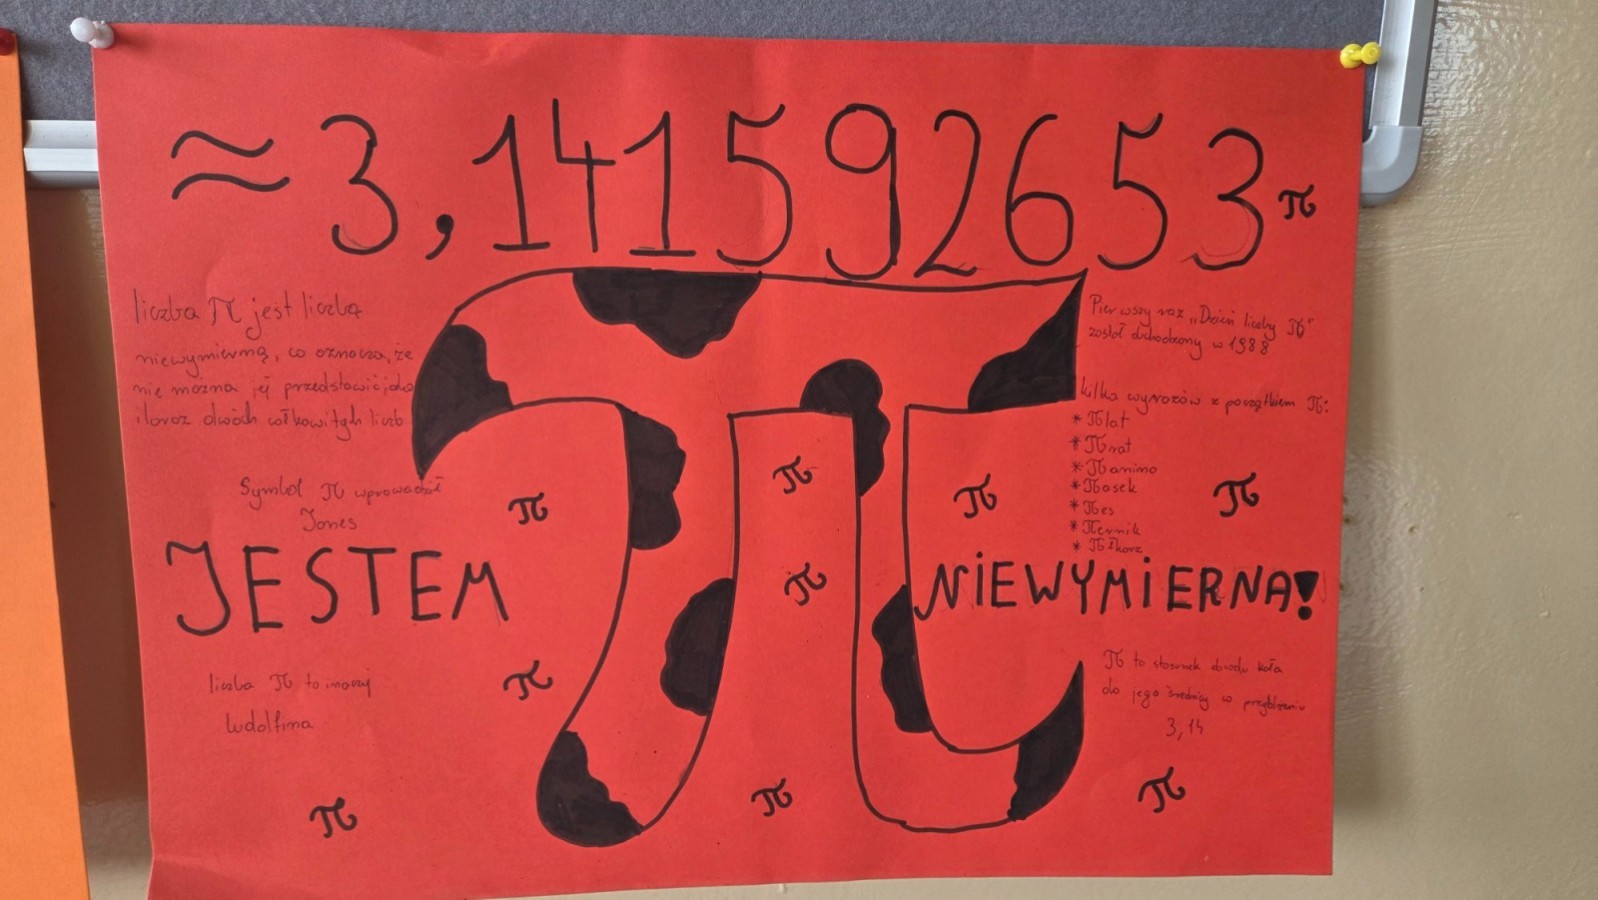 ≈ 3,141592653 π
liczba π jest liczbą
niewymierną, co oznacza, że
nie można jej przedstawić jako
iloraz dwóch całkowitych liczb
Symbol π wprowadził
Jones
JESTEM
liczba π to inaczej
ludolfina
π
π
π
π
π
π
π
Pierwszy raz „Dzień liczby π"
został obchodzony w 1988
kilka wyrazów z początkiem π:
* πlat
* πrat
* πanino
* πasek
* πes
* πernik
* πłkarz
π
NIEWYMIERNA!
π to stosunek obwodu koła
do jego średnicy w przybliżeniu
3,14
π